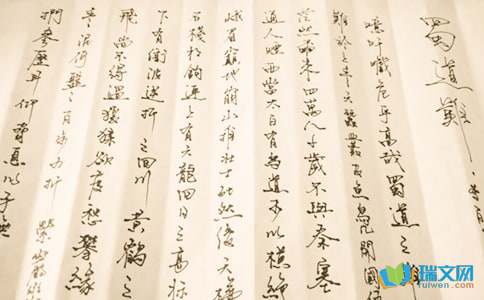 蜀道難
噫吁戲危乎高哉蜀道之
難於上青天蠶叢及魚鳧開國
茫然爾來四萬八千歲不與秦塞
通人煙西當太白有鳥道可以橫絕
峨眉巔地崩山摧壯士死然後天梯
石棧相鉤連上有六龍回日之高標
下有衝波逆折之回川黃鶴之
飛尚不得過猿猱欲度愁攀緣
青泥何盤盤百步九折縈巖
捫參歷井仰脅息以手
瑞文网
ruiwen.com